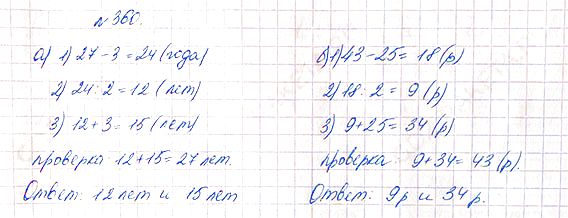 № 360.
а) 1) 27 - 3 = 24 (года)
2) 24 : 2 = 12 (лет)
3) 12 + 3 = 15 (лет)
проверка 12 + 15 = 27 лет.
Ответ: 12 лет и 15 лет
б) 1) 43 - 25 = 18 (р)
2) 18 : 2 = 9 (р)
3) 9 + 25 = 34 (р)
проверка: 9 + 34 = 43 (р).
Ответ: 9 р и 34 р.